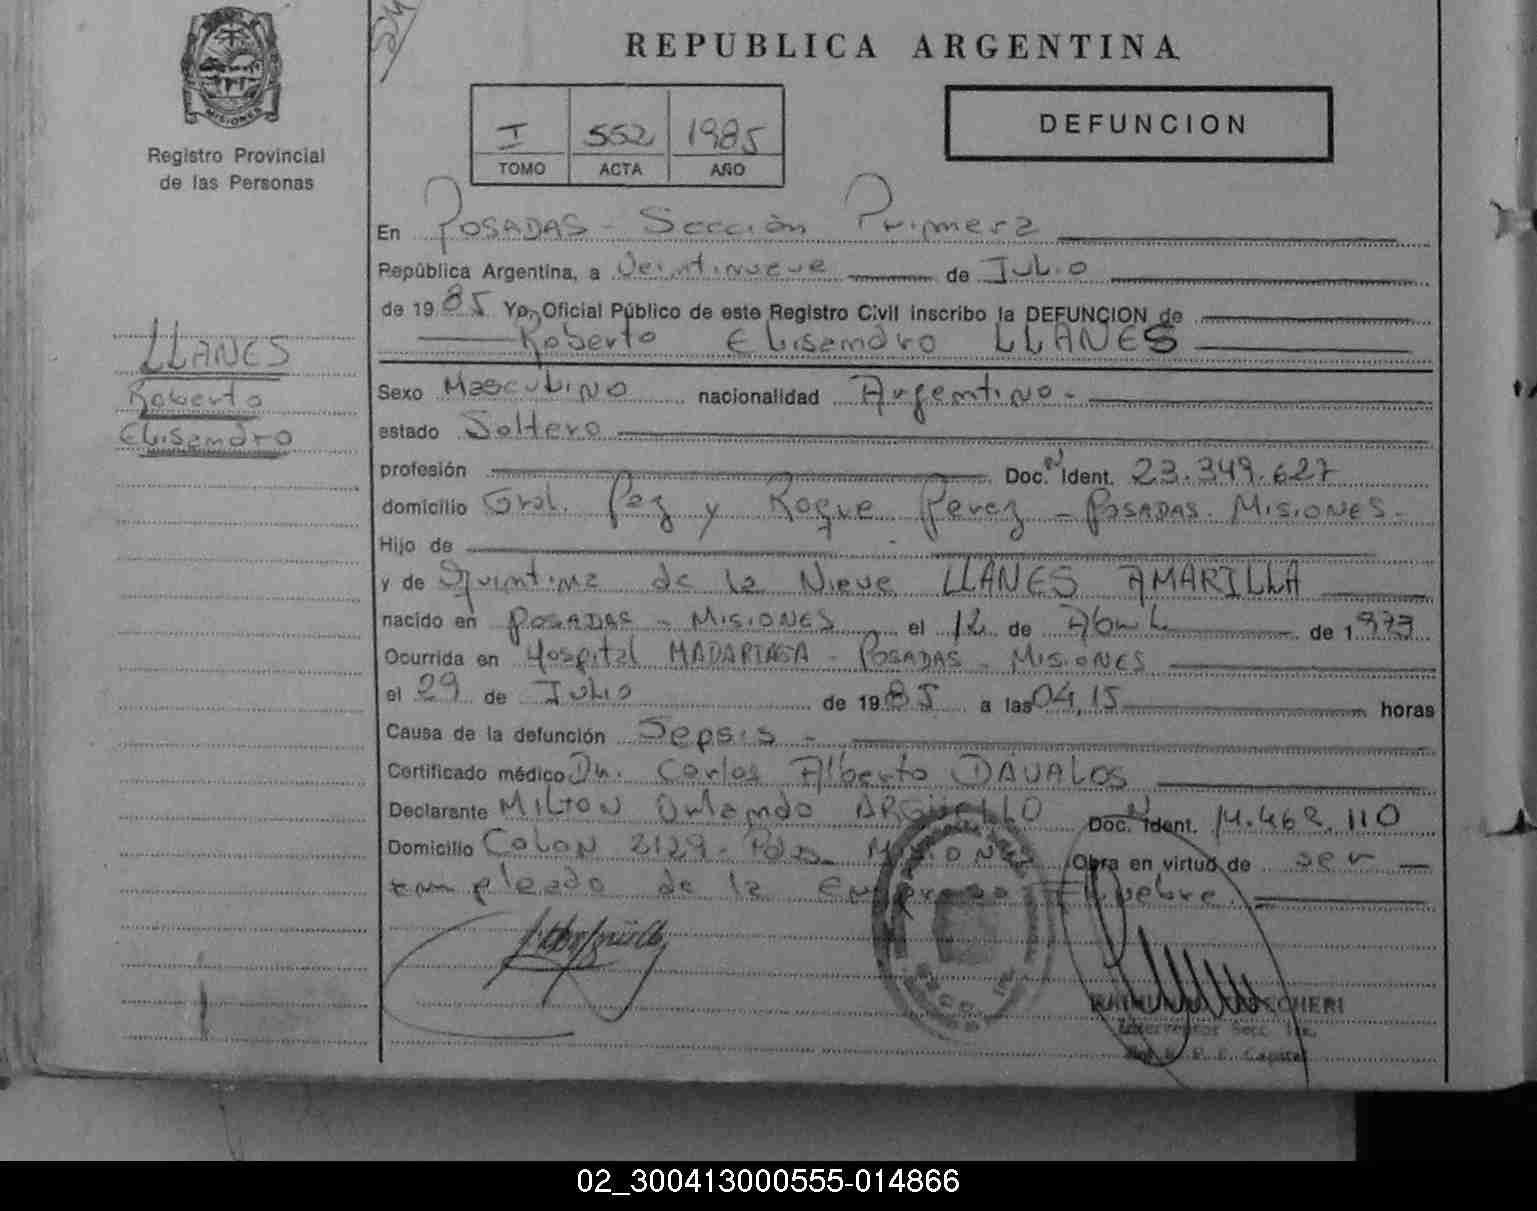 REPUBLICA ARGENTINA
MISIONES
Registro Provincial
de las Personas
I 552 1985
TOMO ACTA AÑO
DEFUNCION
En POSADAS - Sección Primera
República Argentina, a Veintinueve de Julio
de 1985 Yo, Oficial Público de este Registro Civil inscribo la DEFUNCION de
Roberto Elisandro LLANES
LLANES
Roberto
Elisandro
Sexo Masculino nacionalidad Argentino -
estado Soltero
profesión Doc. N Ident. 23.349.627
domicilio Gral. Paz y Roque Perez - POSADAS. MISIONES -
Hijo de
y de Quintina de la Nieve LLANES AMARILLA
nacido en POSADAS - MISIONES el 12 de Abril de 1973
Ocurrida en Hospital MADARIAGA - POSADAS - MISIONES
el 29 de Julio de 1985 a las 04,15 horas
Causa de la defunción Sepsis -
Certificado médico Dr. Carlos Alberto DAVALOS
Declarante MILTON Orlando ARGÜELLO Doc. N Ident. 14.462.110
Domicilio COLON 2129 - Pdas. MISIONES Obra en virtud de ser
empleado de la Empresa Fúnebre.
02_300413000555-014866